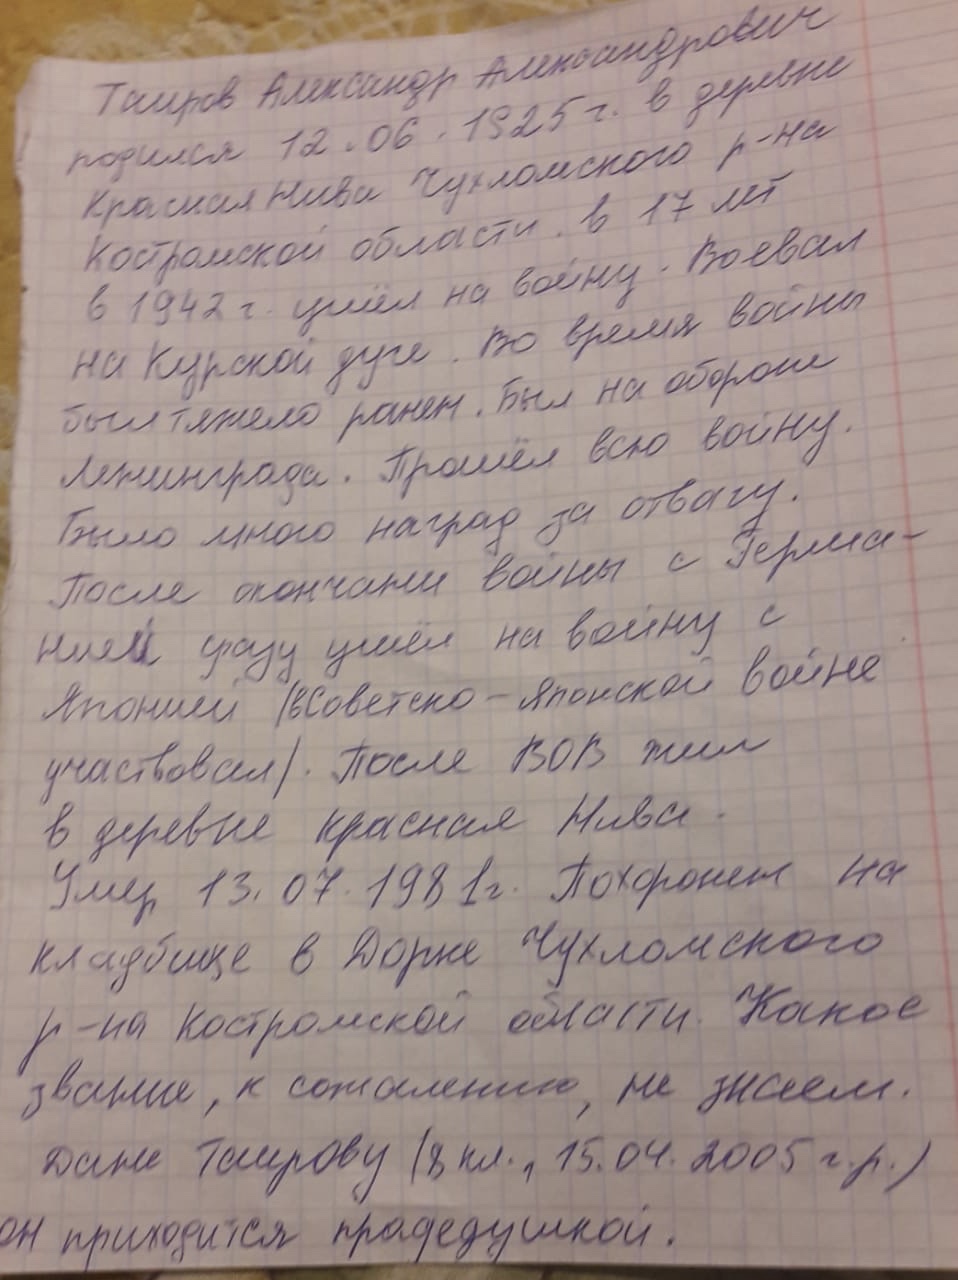 Таиров Александр Александрович
родился 12.06.1925 г. в деревне
Красная Нива Чухломского р-на
Костромской области. в 17 лет
в 1942 г. ушёл на войну. Воевал
на Курской дуге. Во время войны
был тяжело ранен. Был на обороне
Ленинграда. Прошёл всю войну.
Было много наград за отвагу.
После окончани войны с Герма-
нией сразу ушёл на войну с
Японией (вСоветско-Японской войне
участвовал). После ВОВ жил
в деревне Красная Нива.
Умер 13.07.1981г. Похоронен на
кладбище в Дорке Чухломского
р-на Костромской области. Какое
звание, к сожалению, не знаем.
Дане Таирову (8 кл., 15.04.2005 г.р.)
он приходится прадедушкой.